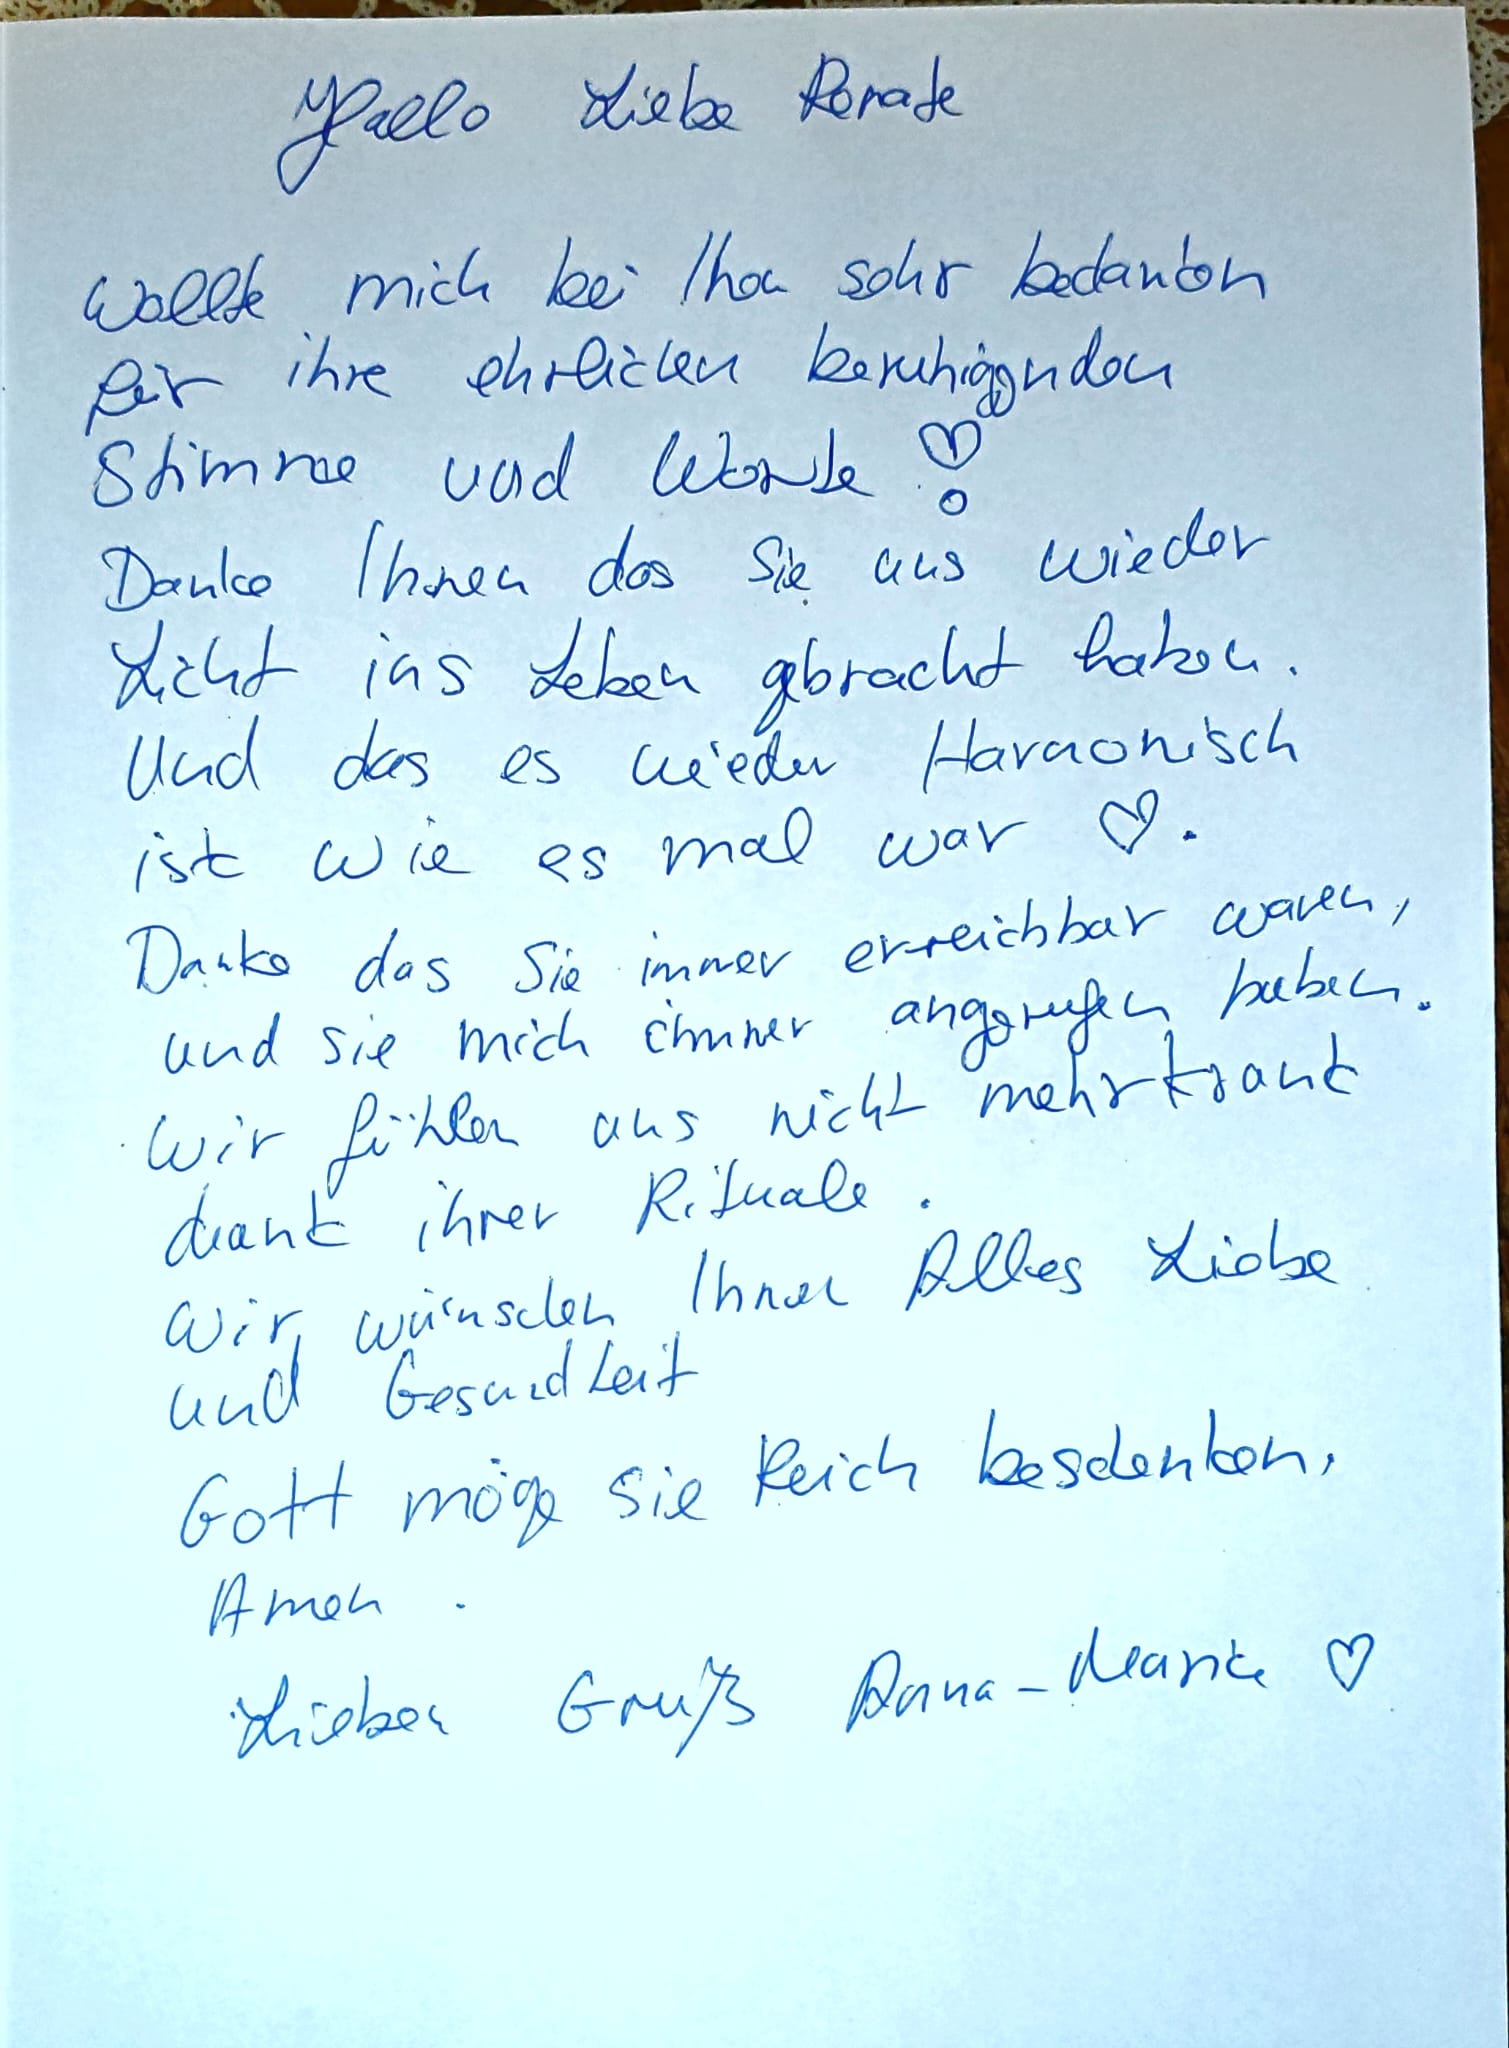 Hallo Liebe Renate
Wollte mich bei Ihen sehr bedanken
für ihre ehrlichen beruhigenden
Stimme und Worte ♡
Danke Ihnen das Sie uns wieder
Licht ins Leben gebracht haben.
Und das es wieder Harmonisch
ist wie es mal war ♡.
Danke das Sie immer erreichbar waren,
und sie mich immer angerufen haben.
Wir fühlen uns nicht mehr krank
dank ihrer Rituale.
Wir wünschen Ihnen Alles Liebe
und Gesundheit
Gott möge sie Reich beschenken.
Amen.
Lieben Gruß Anna-Marie ♡